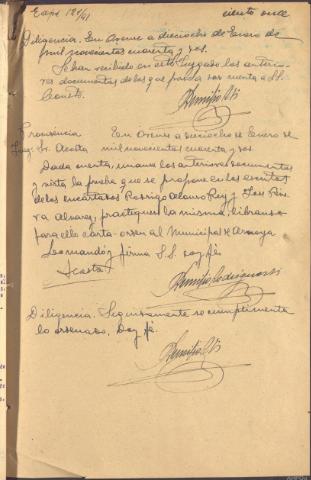 Expe 124/41
ciento once
Diligencia. En Orense a dieciocho de Enero de
mil novecientos cuarenta y dos.
Se han recibido en este Juzgado los anterio-
res documentos de los que paso a dar cuenta a S.S.
Remigio
Providencia En Orense a dieciocho de Enero de
Juez Sr. Acosta mil novecientos cuarenta y dos.
Dada cuenta, unanse los anteriores documentos
y vista la prueba que se propone en los escritos
de los encartados Rodrigo Alonso Rey y Jose
Alvarez, practiquese la misma, librando
para ello carta-orden al Municipal de Amoeya
Lo mandó y firma S.S. doy fé.
Acosta
Remigio
Diligencia. Seguidamente se cumplimenta
lo ordenado. Doy fé.
Remigio